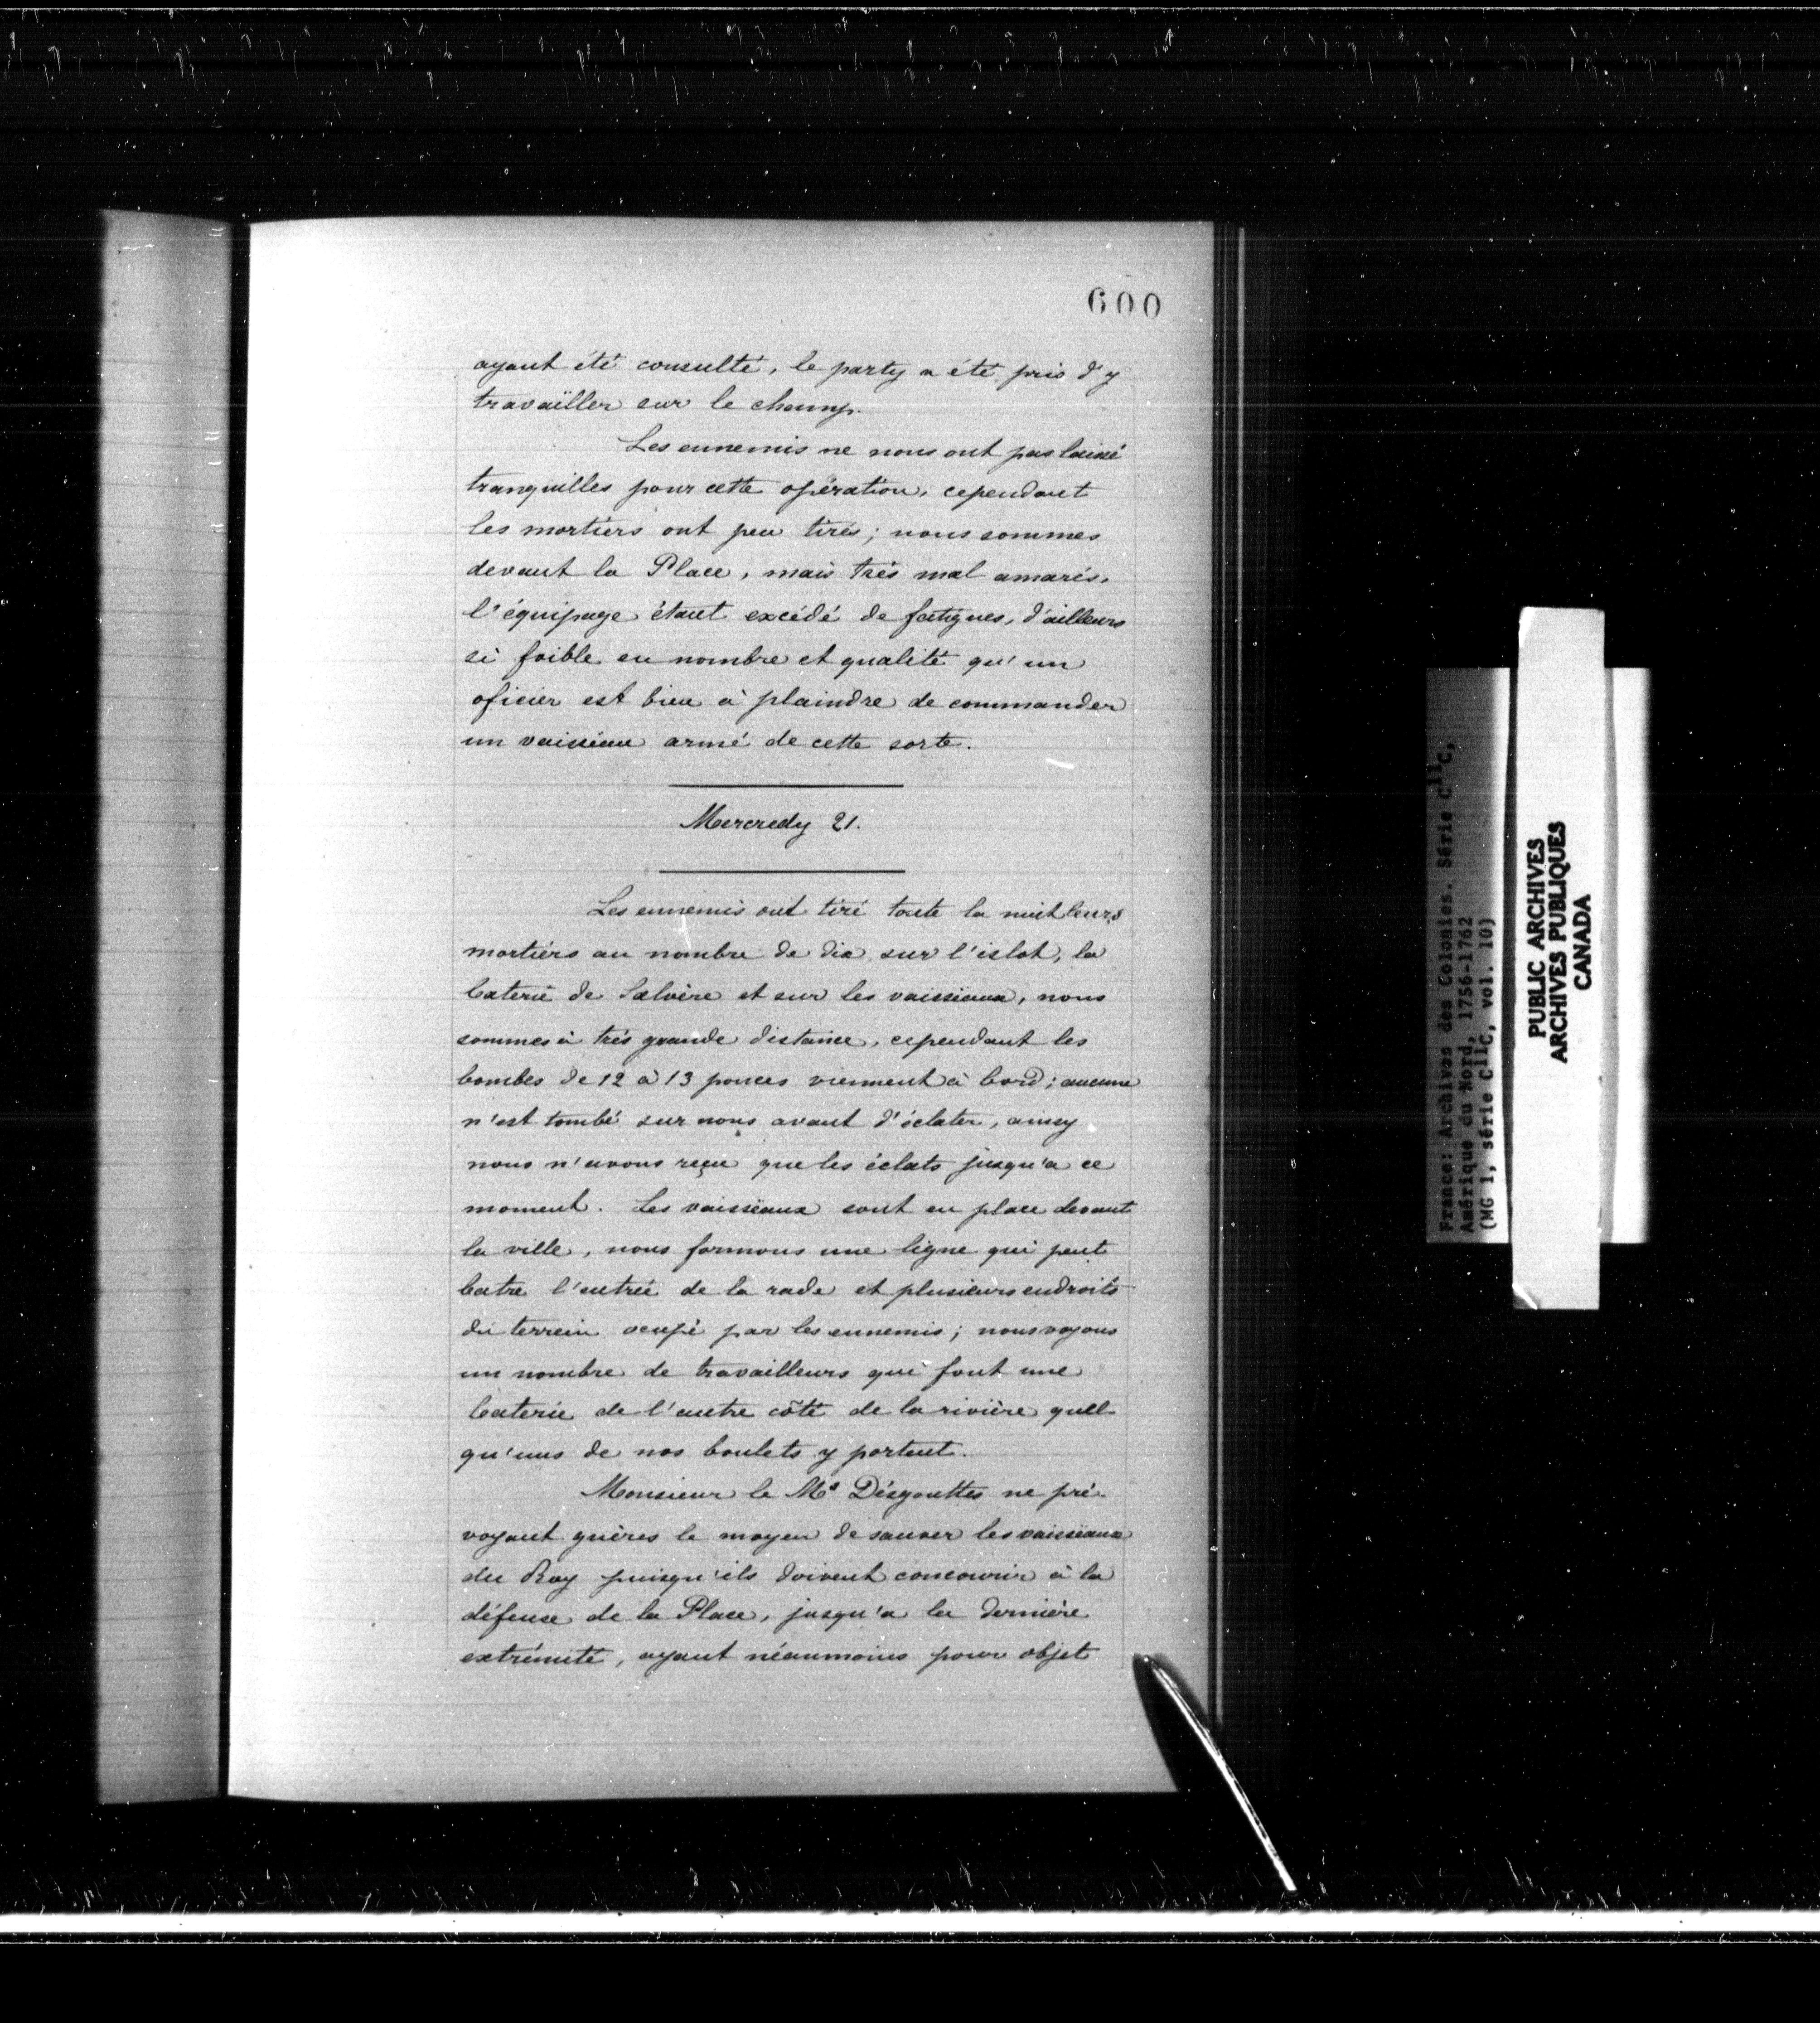 600
ayant été consulté, le party a été pris d'y
travaïller sur le champ.
Les ennemis ne nous ont pas laissé
tranquilles pour cette opération, cependant
les mortiers ont peu tirés; nous sommes
devant la Place, mais très mal amarés,
l'équipage étant excédé de fatigues, d'ailleurs
si foible en nombre et qualité qu'un
oficier est bien à plaindre de commander
un vaisseau armé de cette sorte.
Mercredy 21.
Les ennemis ont tiré toute la nuit leurs
mortiers au nombre de dix sur l'islot, la
baterie de Salvère et sur les vaisseaux, nous
sommes à très grande distance, cependant les
bombes de 12 à 13 pouces viennent à bord; aucune
n'est tombé sur nous avant d'éclater, ainsy
nous n'avons reçu que les éclats jusqu'a ce
moment. Les vaisseaux sont en place devant
la ville, nous formons une ligne qui peut
batre l'entrée de la rade et plusieurs endroits
du terrein ocupé par les ennemis; nous voyons
un nombre de travailleurs qui font une
baterie de l'autre côté de la rivière quel-
qu'uns de nos boulets y portent.
Monsieur le Mis Désgouttes ne pré-
voyant guères le moyen de sauver les vaisseaux
du Roy puisqu'ils doivent concourir à la
défense de la Place, jusqu'a la dernière
extrémité, ayant néanmoins pour objet
France: Archives des Colonies. Série C11C,
Amérique du Nord, 1756-1762
(MG 1, série C11C, vol. 10)
PUBLIC ARCHIVES
ARCHIVES PUBLIQUES
CANADA